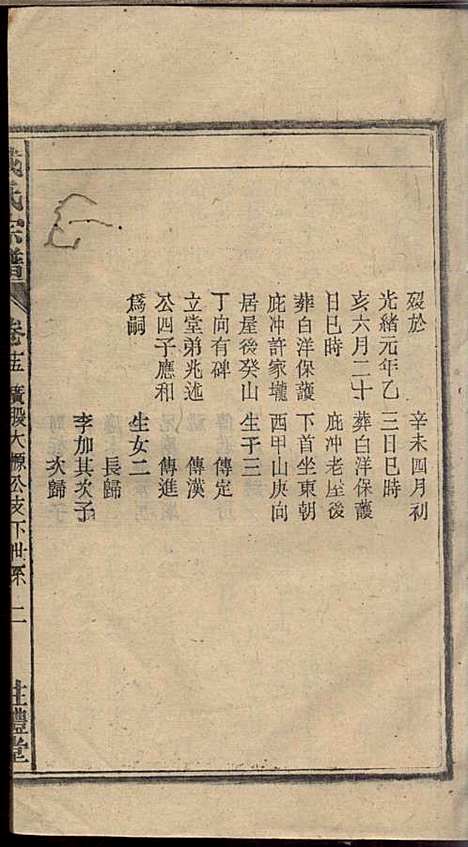 歿於
光緒元年乙
亥六月二十
日巳時
葬白洋保護
庇冲許家壠
居屋後癸山
丁向有碑
立堂弟兆述
公四子應和
爲嗣
辛未四月初
三日巳時
葬白洋保護
庇冲老屋後
下首坐東朝
西甲山庚向
生子三
傳定
傳漢
傳進
生女二
長歸
李加其次子
次歸
氏宗譜
卷十五 大願公支下世系 二
禮堂